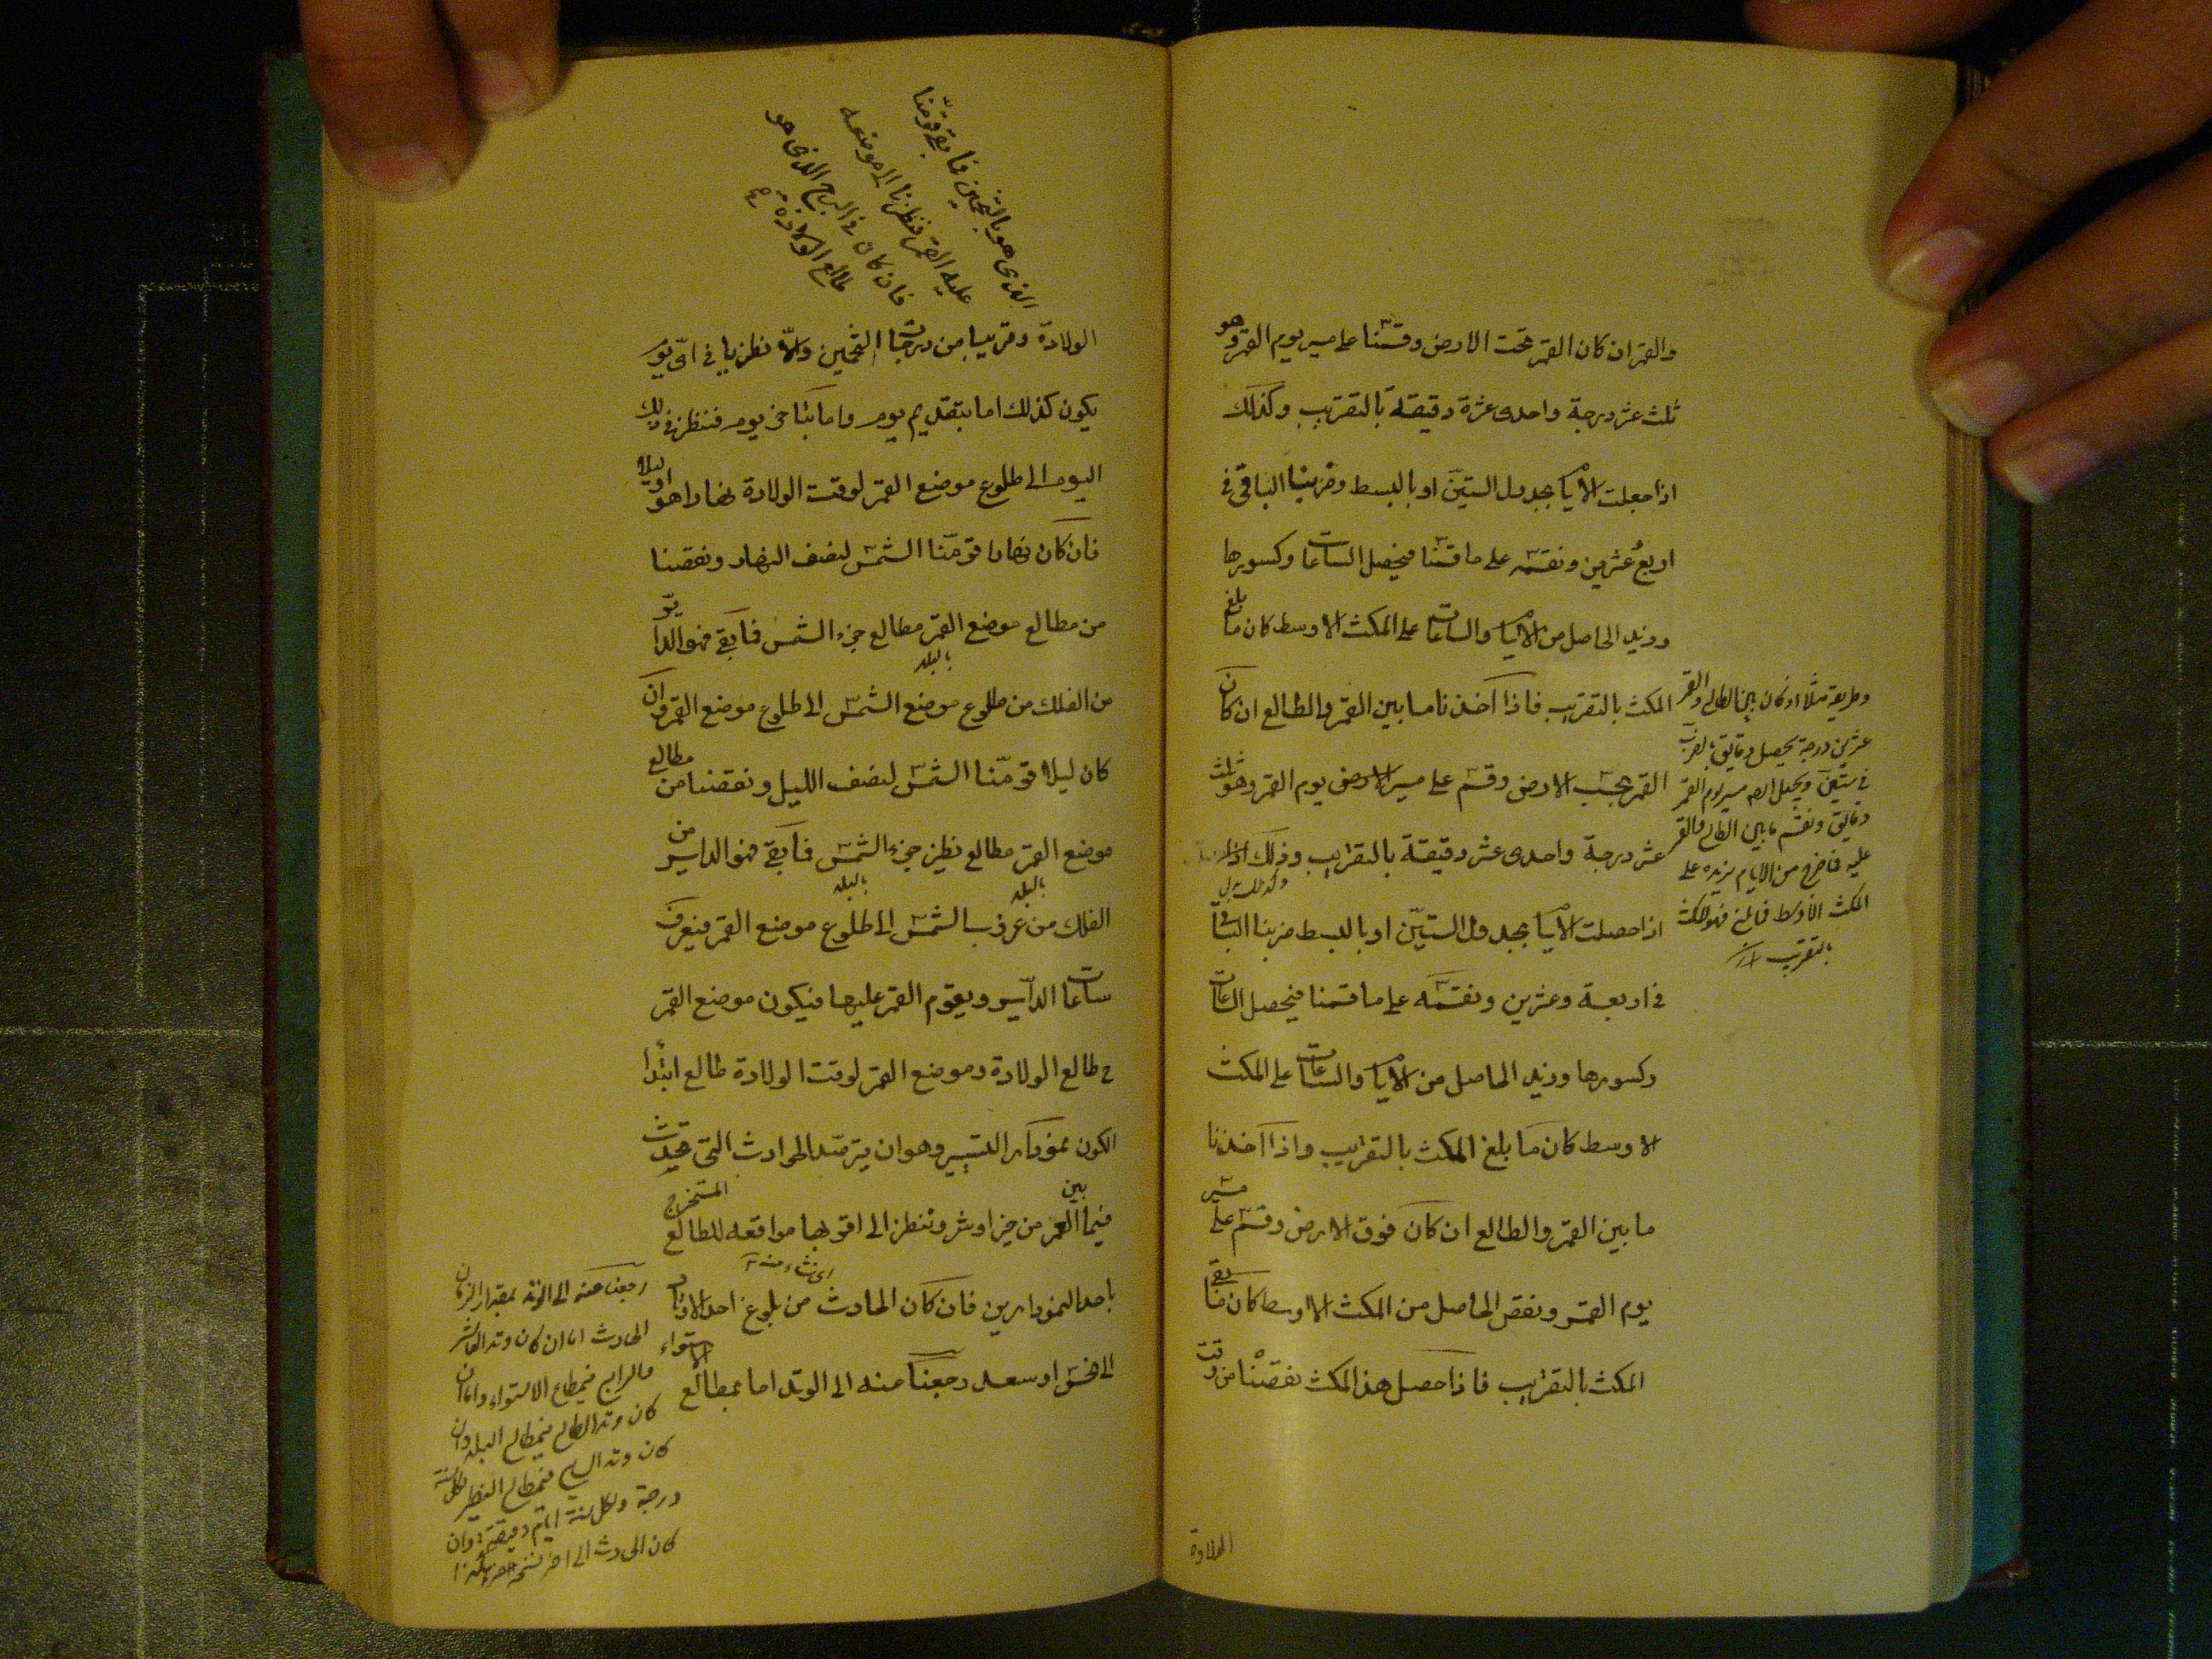 والقمر ان كان القمر تحت الارض وقسمنا على مسير يوم القمر وهو
ثلث عشر درجة واحدى عشرة دقيقة بالتقريب وكذلك
اذا جعلت الايام بجدول الستين او بالبسط وضربنا الباقى فى
اربع عشرين ونقسمه على ما قسمنا فيحصل الساعات وكسورها
ونزيد الحاصل من الايام والساعات على المكث الاوسط كان ما بلغ
المكث بالتقريب فاذا اخذنا ما بين القمر والطالع ان كان
القمر تحت الارض وقسم على مسير الارض يوم القمر وهو ثلث
عشر درجة واحدى عشر دقيقة بالتقريب وذلك
وكذلك
اذا حصلت الايام بجدول الستين او بالبسط ضربنا الباقى
فى اربعة وعشرين ونقسمه على ما قسمنا فيحصل الساعات
وكسورها ونزيد الحاصل من الايام والساعات على المكث
الاوسط كان ما بلغ المكث بالتقريب واذا اخذنا
ما بين القمر والطالع ان كان فوق الارض وقسم على مسير
يوم القمر ونقص الحاصل من المكث الاوسط كان ما بقى
المكث بالتقريب فاذا حصل هذا المكث نقصنا من وقت
الولادة
وطريقه مثلا اذ كان بين الطالع والقمر
عشرين درجة يحصل دقايق بالضرب
فى ستين ويجعل مسير يوم القمر
دقايق ونقسم ما بين الطالع والقمر
عليه فما خرج من الايام نزيده على
المكث الاوسط فما بلغ فهو المكث
بالتقريب
الذى هو بالتخمين فما بقى قومنا
عليه القمر فنظرنا الى موضعه
فان كان فى البرج الذى هو
طالع الولادة
الولادة وقريبا من درجات التخمين والا نظرنا فى اى يوم
يكون كذلك اما بتقديم يوم واما بتاخر يوم فننظر فى ذلك
اليوم الى طلوع موضع القمر لوقت الولادة نهارا هو او ليلا
فان كان نهارا قومنا الشمس لنصف النهار ونقصنا
من مطالع موضع القمر مطالع جزء الشمس فما بقى فهو الداير
بالبلد
من الفلك من طلوع موضع الشمس الى طلوع موضع القمر وان
كان ليلا قومنا الشمس لنصف الليل ونقصنا من مطالع
موضع القمر مطالع نظير جزء الشمس فما بقى فهو الداير من
بالبلد بالبلد
الفلك من غروب الشمس الى طلوع موضع القمر فيعرف
ساعات الداير ويقوم القمر عليها فيكون موضع القمر
فى طالع الولادة وموضع القمر لوقت الولادة طالع ابتدا
الكون بمودار التسيير وهو ان يترصد الحوادث التى تحدث
فيما بين العمر من خير او شر وننظر الى اقربها موافقه للطالع المستخرج
باحد النمودارين فان كان الحادث من بلوغ احد الاوتاد
الى نحس او سعد رجعنا منه الى الوتد اما بمطالع الاستواء
رجعنا منه الى الوتد بمقدار الزمان
الحادث اما ان كان وتد العاشر
والرابع فبمطالع الاستواء واما ان
كان وتد الطالع فبمطالع البلد وان
كان وتد السابع فبمطالع النظير لكل سنة
درجة ولكل ستة ايام دقيقة وان
كان الحادث الى اخر